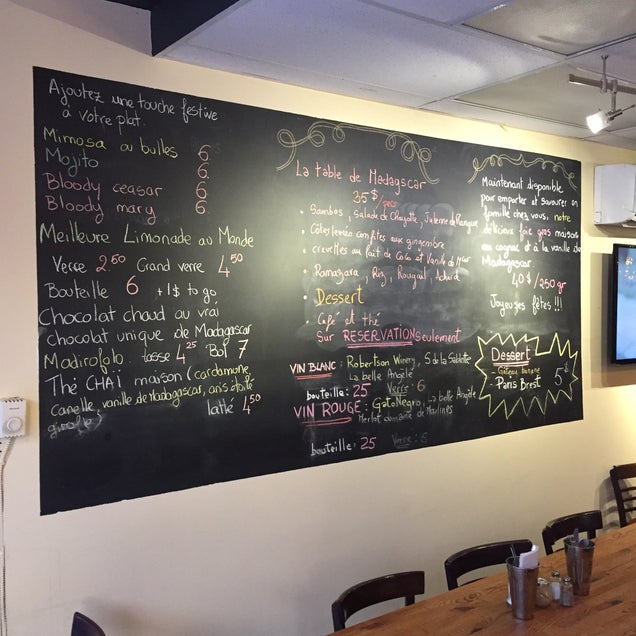 Ajoutez une touche festive
à votre plat.
Mimosa au bulles 6
Mojito 6.
Bloody ceasar 6.
Bloody mary 6.
Meilleure Limonade au Monde
Verre 2.50 Grand verre 4.50
Bouteille 6 +1$ to go
Chocolat chaud au vrai
chocolat unique de Madagascar
Madirofolo tasse 4.25 Bol 7
Thé CHAÏ maison (cardamome,
Canelle, vanille de Madagascar, anis étoilé
girofle) latté 4.50
La table de Madagascar
35$/pers
• Sambos, salade de Chayotte, Julienne de Mangue
• Côtelettes confites aux gingembre
crevettes au lait de Coco et Vanille
• Romazava, Riz, Rougail, Achard
• Dessert
• Café et thé
Sur RESERVATION seulement
VIN BLANC : Robertson Winery, S de la Sablette
La belle Angèle
bouteille : 25 Verre 6
VIN ROUGE : Gato Negro, La belle Angèle
Merlot domaine de
bouteille : 25 Verre : 6
Maintenant disponible
pour emporter et savourer en
famille chez vous, notre
délicieux foie gras maison
au cognac et à la vanille de
Madagascar
40$/250gr
Joyeuses fêtes !!!
Dessert
- Gâteau banane
- Paris Brest 5$